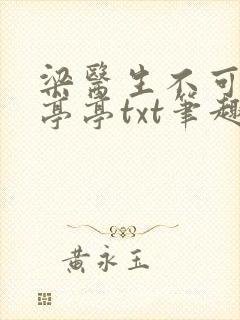 梁醫生不可
亭亭txt筆趣
黃永玉